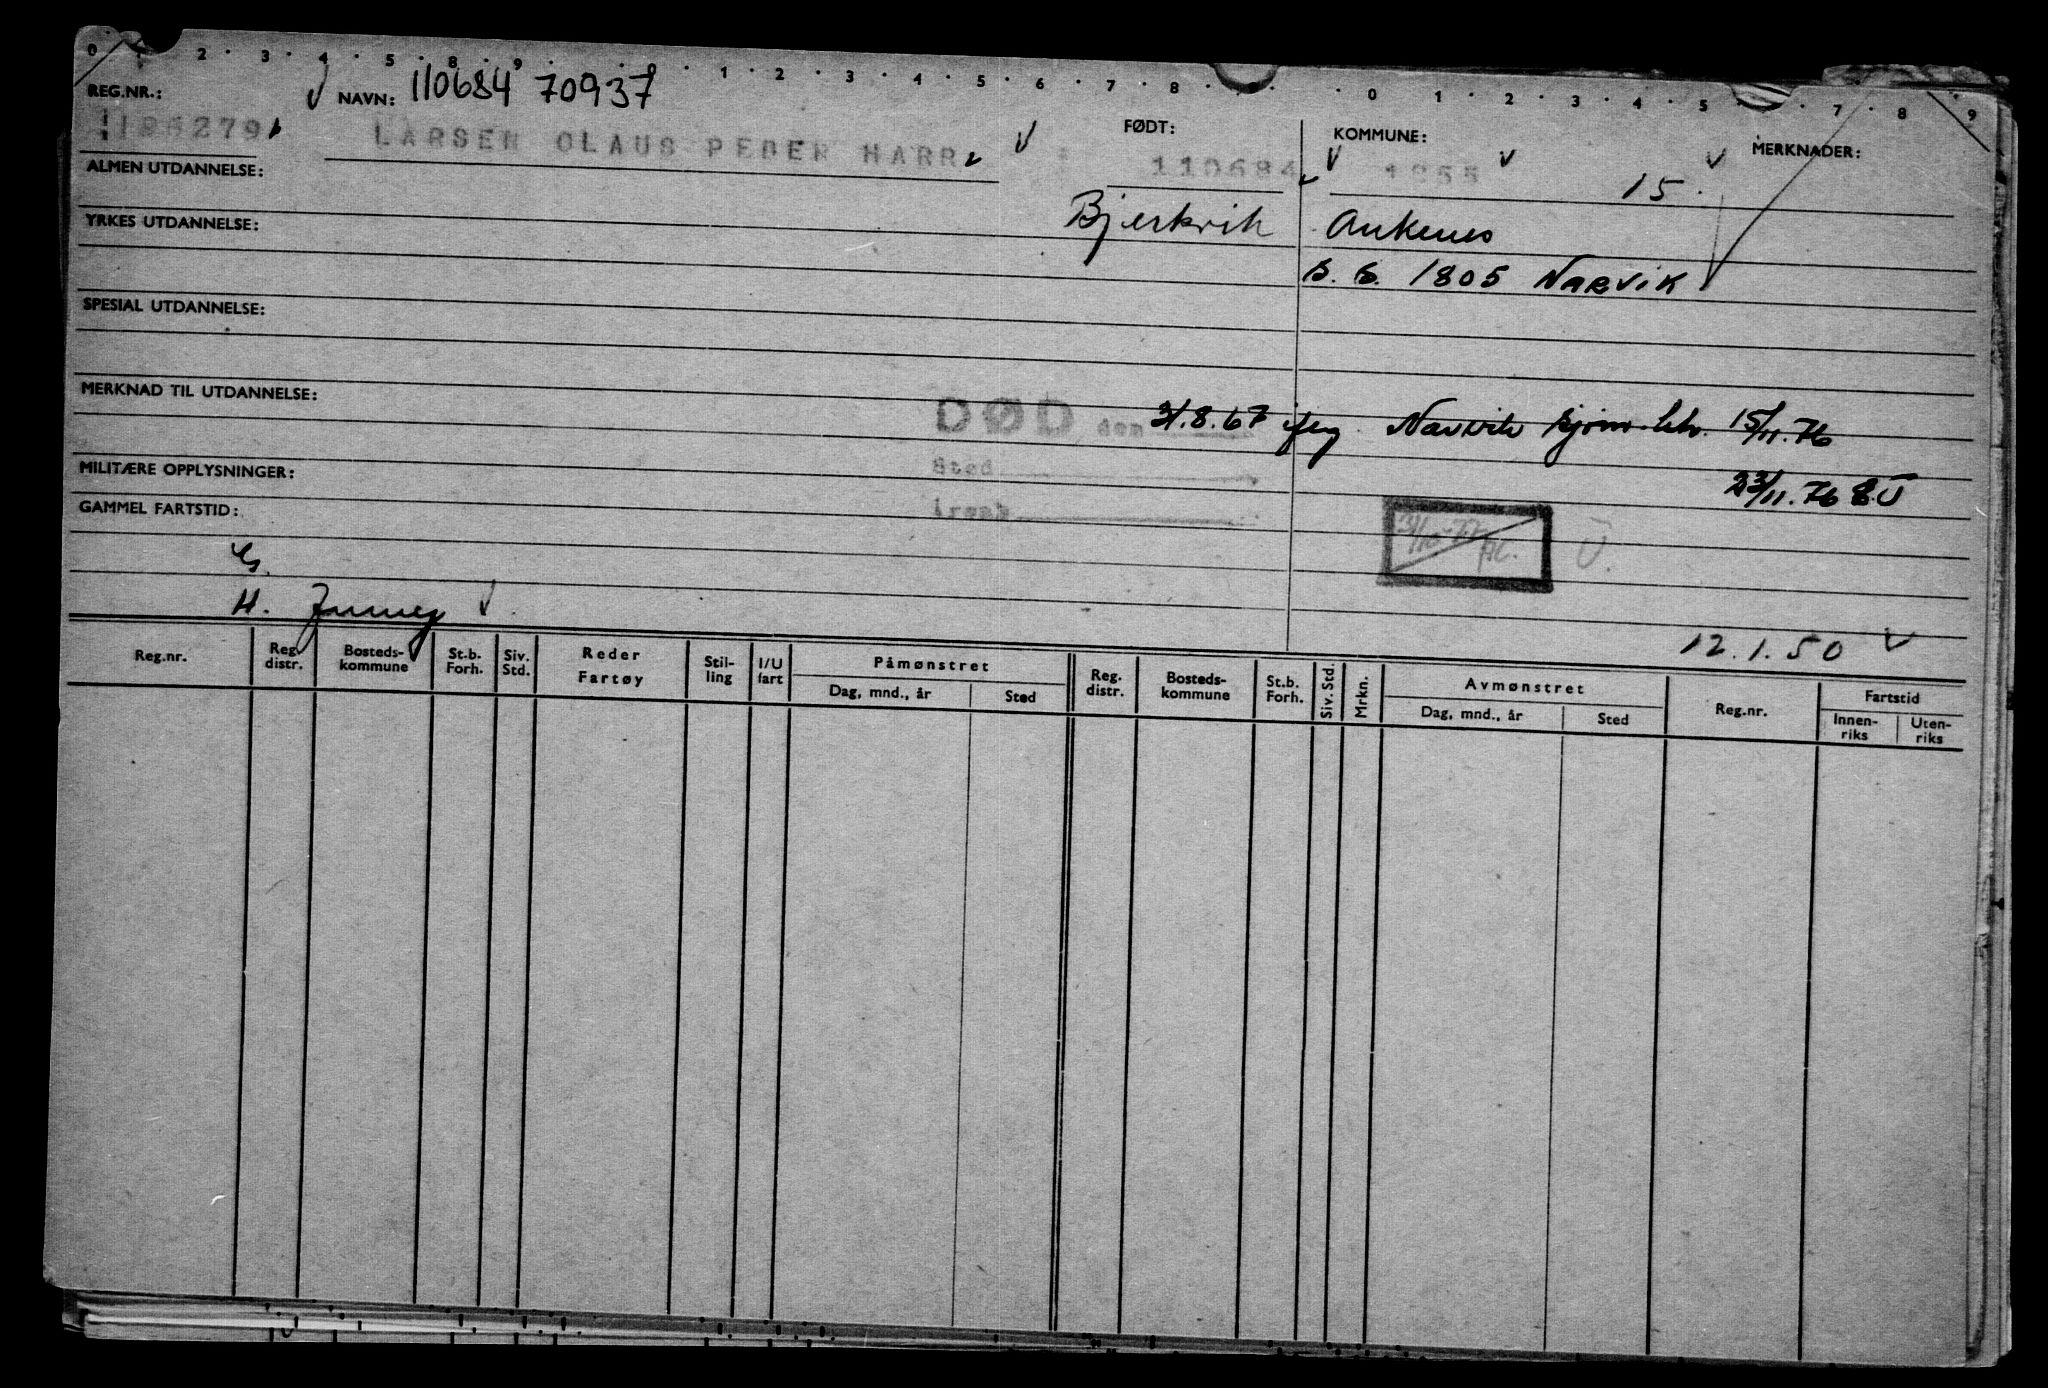 0 2 3 4 5 8 9 1 2 3 4 5 6 7 8 0 1 2 3 4 5 7 8 9
REG.NR.: NAVN: 110684 70937 FØDT: KOMMUNE: MERKNADER:
LARSEN OLAUS PEDER HARR 110684 1855 15
ALMEN UTDANNELSE:
YRKES UTDANNELSE: Bjerkvik Ankenes
1805 NARVIK
SPESIAL UTDANNELSE:
MERKNAD TIL UTDANNELSE: DØD den 31.8.67 Narvik 15/11.76
MILITÆRE OPPLYSNINGER: Sted 23/11.76
GAMMEL FARTSTID: Årsak
G.
H.
12.1.50
Reg.nr. Reg. distr. Bosteds-kommune St.b. Forh. Siv. Std. Reder Fartøy Stil-ling I/U fart Påmønstret Dag, mnd., år Sted Reg. distr. Bosteds-kommune St.b. Forh. Siv. Std. Mrkn. Avmønstret Dag, mnd., år Sted Reg.nr. Fartstid Innen-riks Uten-riks